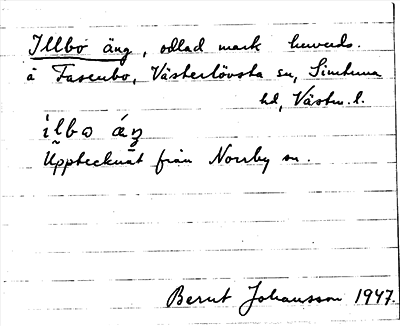 Illbo äng, odlad mark huvuds.
å Fasenbo, Västerlövsta sn, Simtuna
hd, Västm. l.
ilbɷ áŋ
Upptecknat från Norrby sn.
Bernt Johansson 1947.